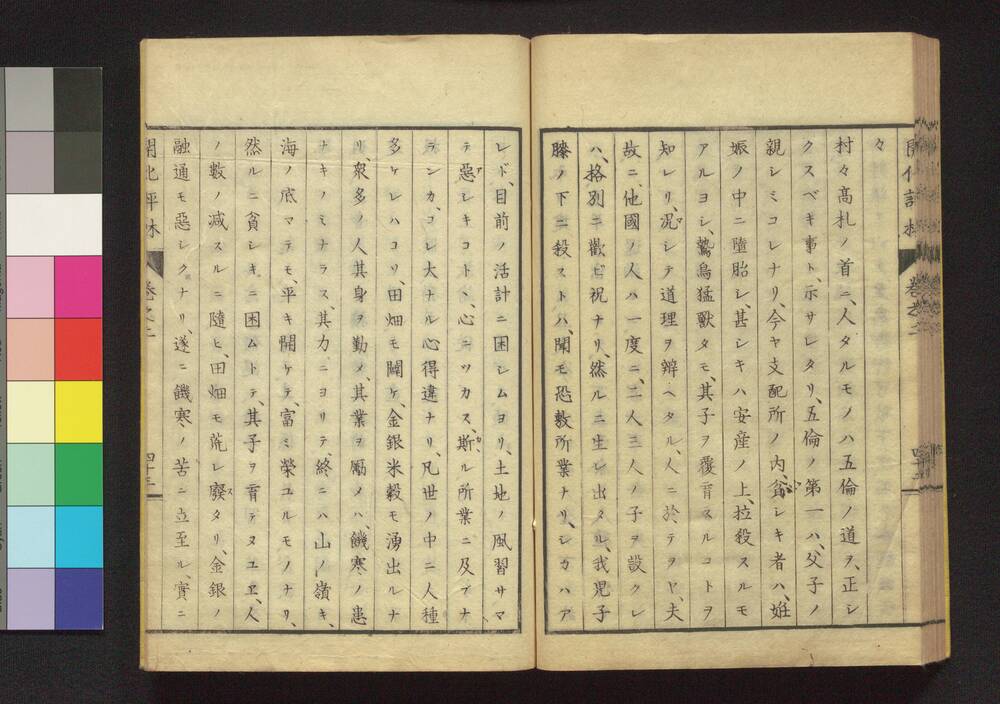 々
村々高札ノ首ニ、人タルモノハ五倫ノ道ヲ、正シ
クスベキ事ト、示サレタリ、五倫ノ第一ハ、父子ノ
親シミコレナリ、今ヤ支配所ノ内、貧シキ者ハ、姙
娠ノ中ニ墮胎シ、甚シキハ安産ノ上、拉殺スルモ
アルヨシ、鷙鳥猛獸タモ、其子ヲ覆育スルコトヲ
知レリ、况シテ道理ヲ辧ヘタル、人ニ於テヲヤ、夫
故ニ、他國ノ人ハ一度ニ、二人三人ノ子ヲ設クレ
ハ、格別ニ歡ビ祝ナリ、然ルニ生レ出タル、我児子
膝ノ下ニ殺ストハ、聞モ恐敷所業ナリ、シカハア
レド、目前ノ活計ニ困シムヨリ、土地ノ風習サマ
テ惡シキコトト、心ニツカス、斯ル所業ニ及ブナ
ランカ、コレ大ナル心得違ナリ、凡世ノ中ニ人種
多ケレハコソ、田畑モ闢ケ、金銀米穀モ湧出ルナ
リ、衆多ノ人其身ヲ勤メ、其業ヲ勵メハ、饑寒ノ患
ナキノミナラス、其力ニヨリテ、終ニハ山ノ嶺キ、
海ノ底マテモ、平キ開ケテ、富ミ榮ユルモノナリ、
然ルニ貧シキニ困ムトテ、其子ヲ育テヌユヱ、人
ノ數ノ减スルニ隨ヒ、田畑モ荒レ廢タリ、金銀ノ
融通モ惡シクナリ、遂ニ饑寒ノ苦ニ立至ル、實ニ